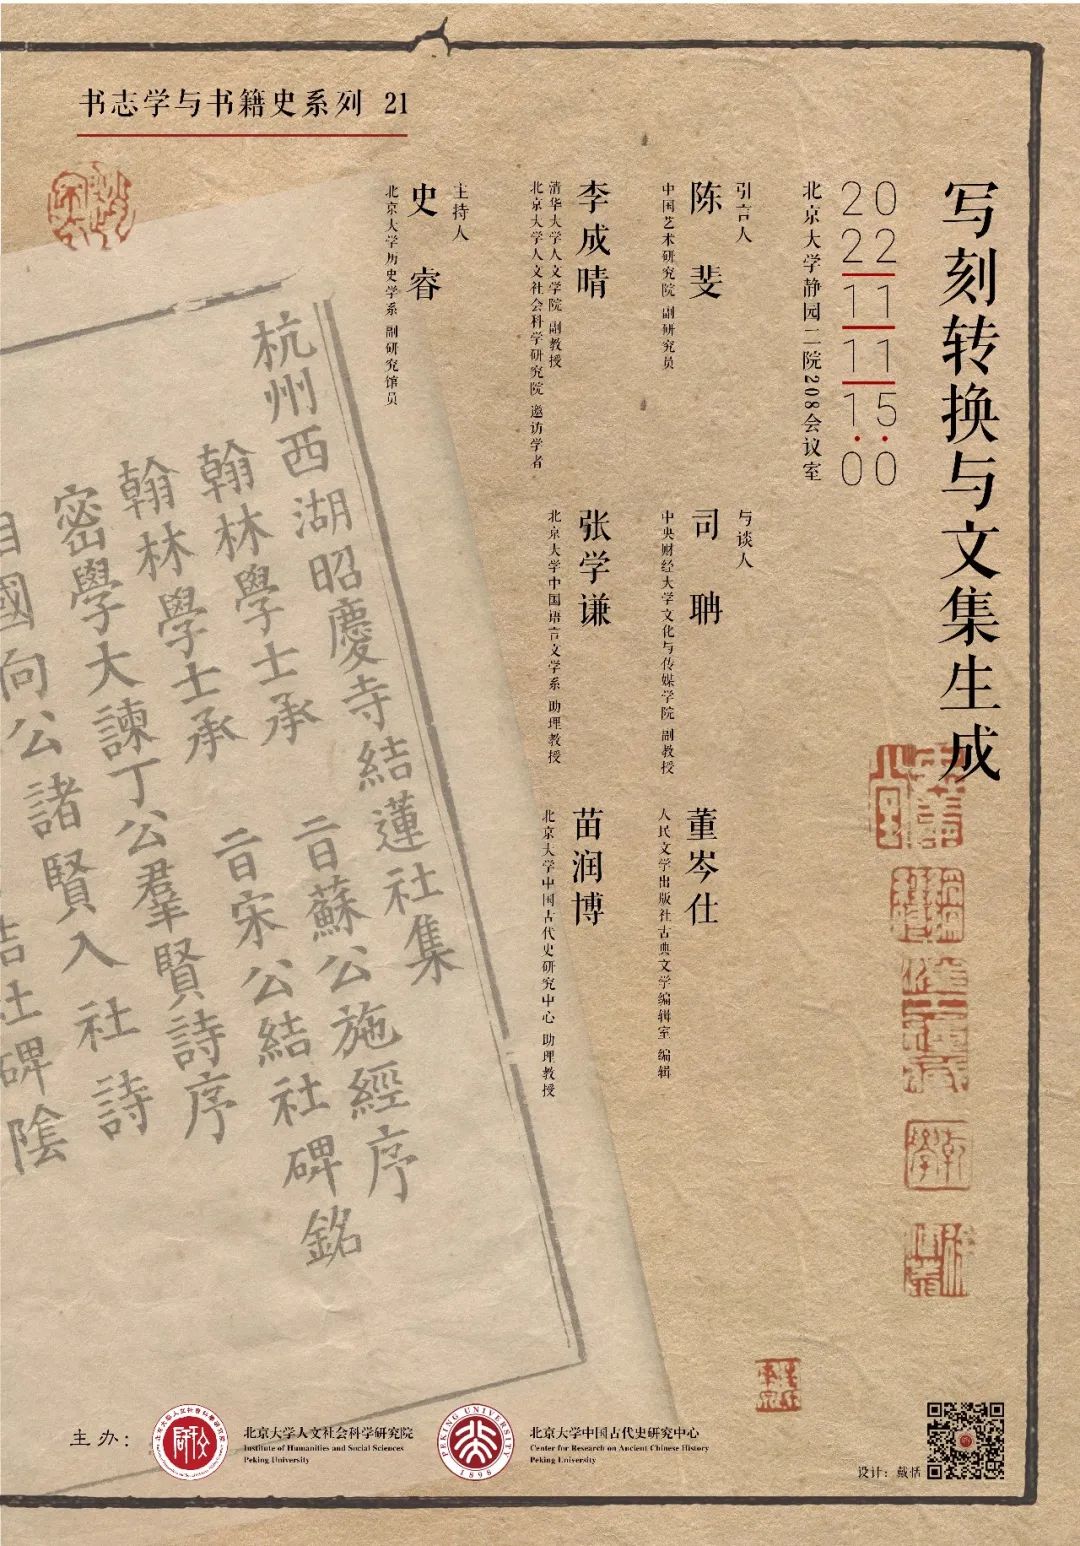 书志学与书籍史系列 21
写刻转换与文集生成
2022
11
11
15:00
北京大学静园二院208会议室
引言人
陈斐
中国艺术研究院 副研究员
李成晴
清华大学人文学院 副教授
北京大学人文社会科学研究院 邀访学者
主持人
史睿
北京大学历史学系 副研究馆员
与谈人
司聃
中央财经大学文化与传媒学院 副教授
张学谦
北京大学中国语言文学系 助理教授
董岑仕
人民文学出版社古典文学编辑室 编辑
苗润博
北京大学中国古代史研究中心 助理教授
杭州西湖昭慶寺結蓮社集
翰林學士承 旨蘇公施經序
翰林學士承 旨宋公結社碑銘
密學大諫丁公羣賢詩序
相國向公諸賢入社詩
結社碑陰
主办：
北京大学人文社会科学研究院
Institute of Humanities and Social Sciences
Peking University
PEKING UNIVERSITY
1898
北京大学中国古代史研究中心
Center for Research on Ancient Chinese History
Peking University
设计：戴恬